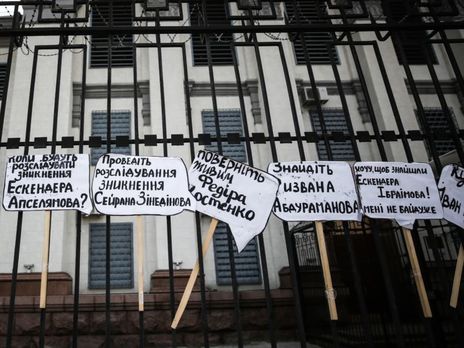 КОЛИ БУДУТЬ
РОЗСЛІДУВАТИ
ЗНИКНЕННЯ
ЕСКЕНДЕРА
АПСЕЛЯМОВА?
ПРОВЕДІТЬ
РОЗСЛІДУВАННЯ
ЗНИКНЕННЯ
СЕЙРАНА ЗІНЕДІНОВА
ПОВЕРНІТЬ
ЖИВИМ
ФЕДІРА
КОСТЕНКО
ЗНАЙДІТЬ
РИЗВАНА
АБДУРАМАНОВА
ХОЧУ, ЩОБ ЗНАЙШЛИ
ЕСКЕНДЕРА
ІБРАЇМОВА!
МЕНІ НЕ БАЙДУЖЕ
ІВАН